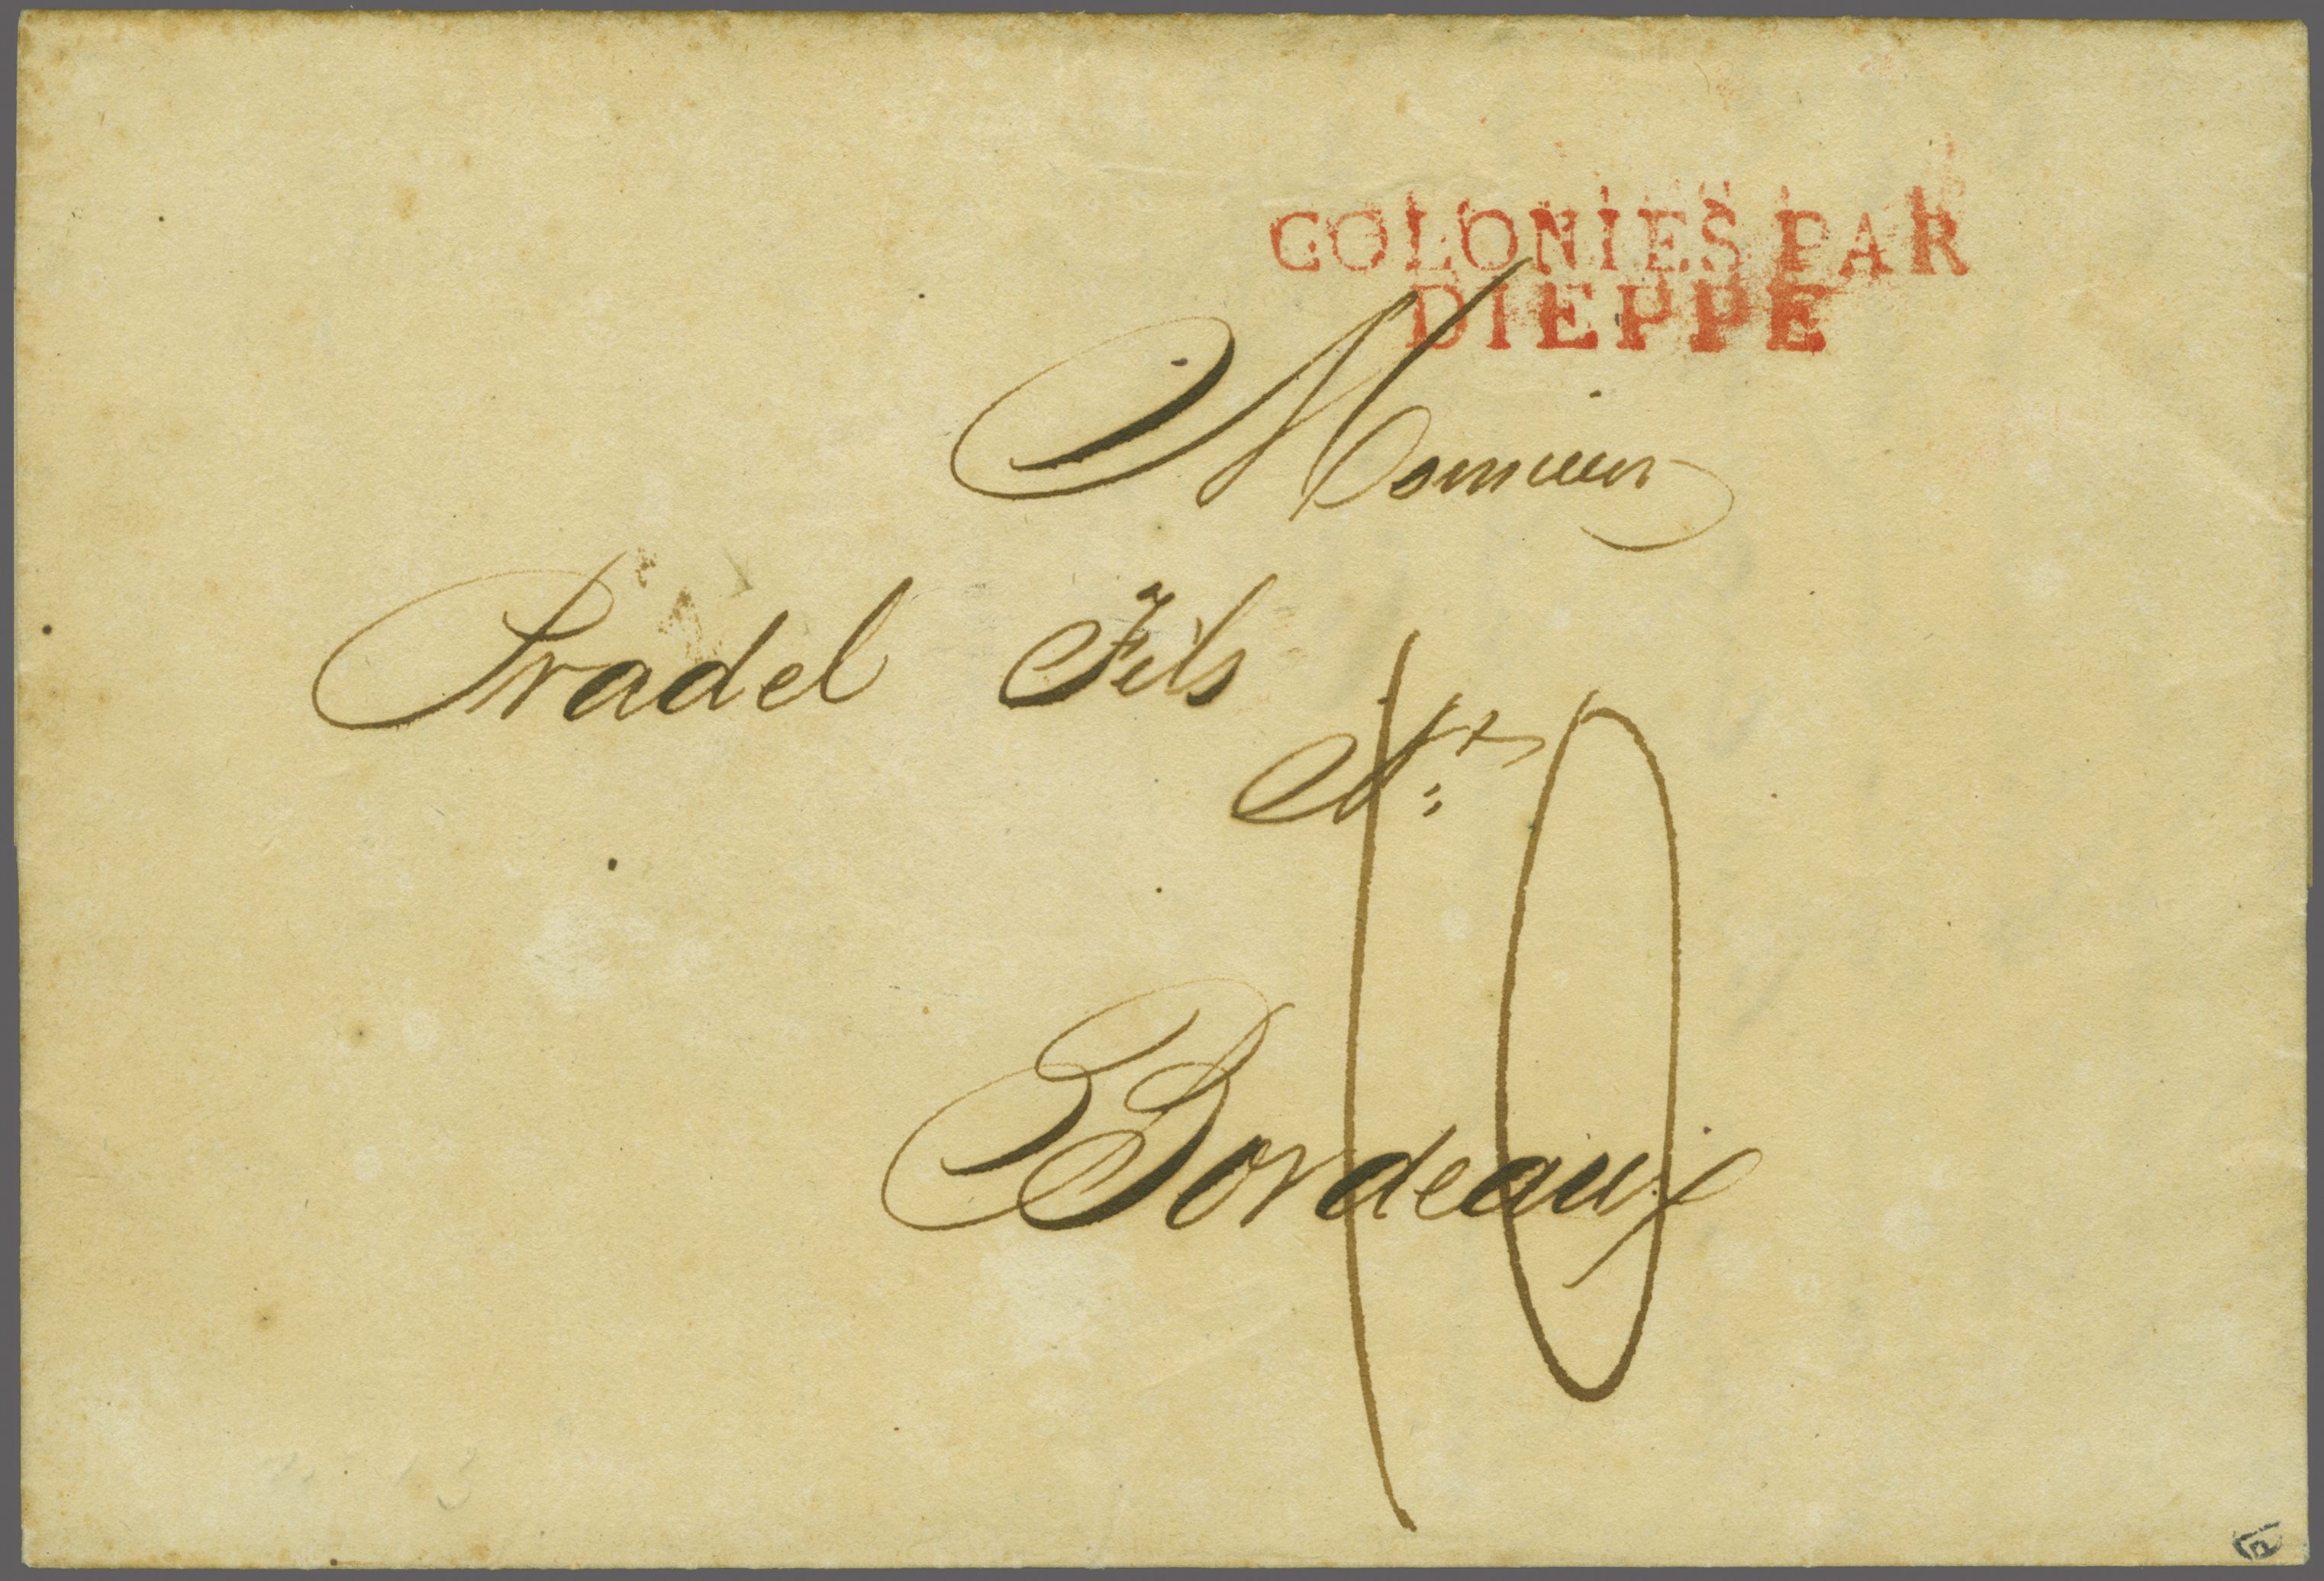 COLONIES PAR
DIEPPE
Monsieur
Pradel Fils
Nt
10
Bordeaux